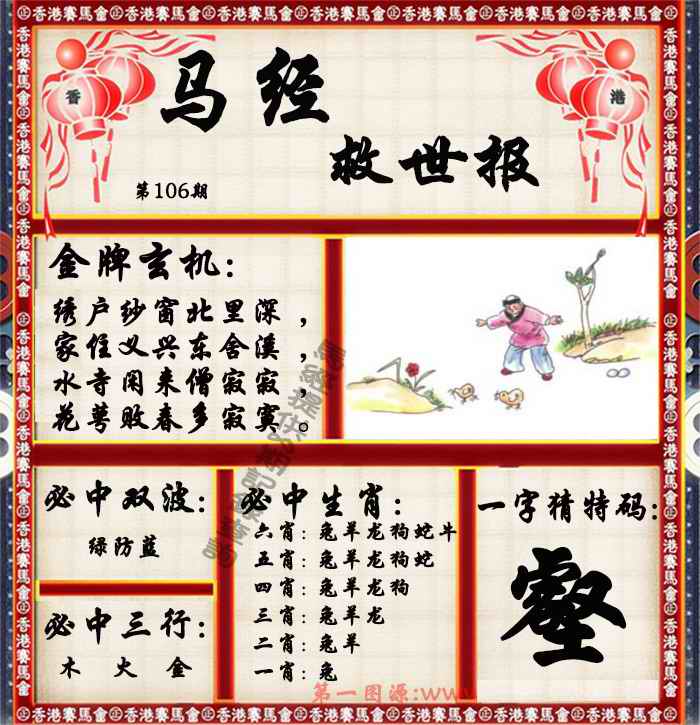 香港賽馬會
香
港
马经
救世报
第106期
金牌玄机：
绣户纱窗北里深，
家住义兴东舍溪，
水寺闲来僧寂寂，
花萼败春多寂寞。
必中双波：
绿防蓝
必中三行：
木 火 金
必中生肖：
六肖：兔羊龙狗蛇牛
五肖：兔羊龙狗蛇
四肖：兔羊龙狗
三肖：兔羊龙
二肖：兔羊
一肖：兔
一字猜特码：
壑
第一图源:www